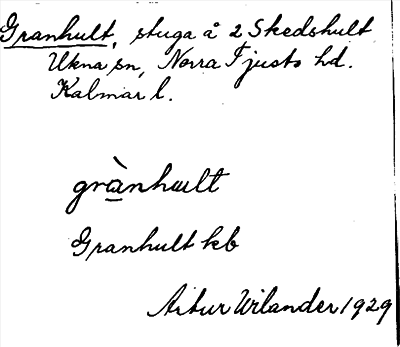 Granhult, stuga å 2 Skedshult
Ukna sn, Norra Tjusts hd.
Kalmar l.
grànhult
Granhult kb
Artur Wilander 1929